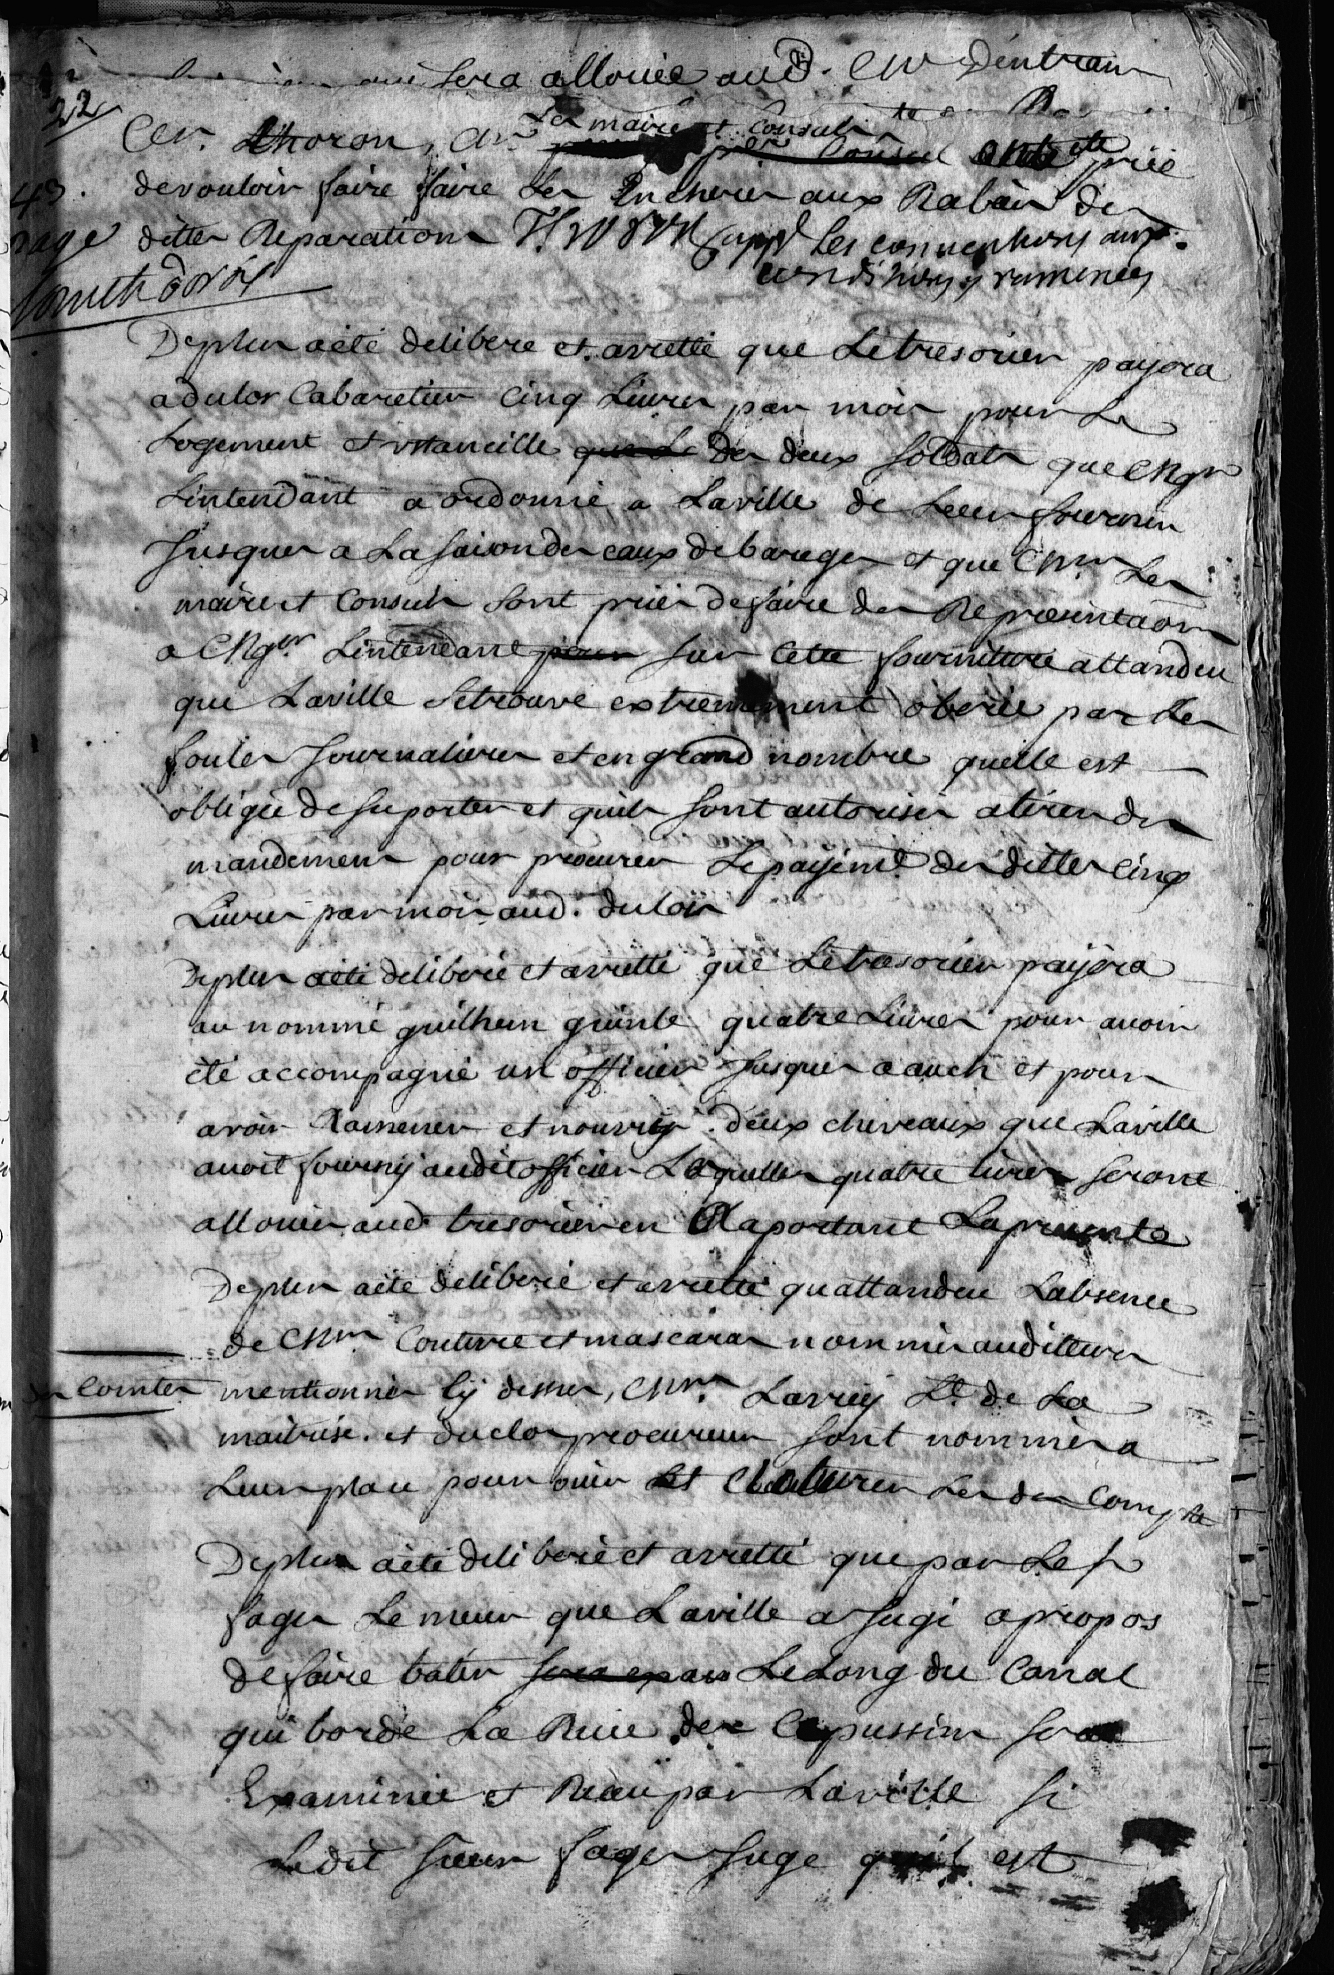 sera allouée aud. Dentran
22
les maire et Consuls
Cer. Lhoron, Consul ont été priée
43. devouloir faire faire les Encheres aux Rabais des
page dittes Reparations les conventions aux
conditions y ramenées
Deplus aété deliberé et arretté que Letresorier payera
adulor Cabaretier Cinq Livres par mois pour Le
Logement et ustancille des deux soldats que Mgr
Lintendant a ordonné a Laville de Leur fournir
Jusques a La saison des eaux debareges et que Mrs Les
maire et Consuls sont priés defaire des Representaons
a Mgr. Lintendant sur Cette fourniture attandeu
que Laville setrouve extremement oberée par les
foules Journalieres et en grand nombre quelle est
obligée de suporter et quils sont autorisés atirer des
mandemens pour procurer Lepayemt. desdittes Cinq
Livres par mois aud. dulor
Deplus aété deliberé et arretté que Letresorier payera
au nommé guilhem quatre Livres pour avoir
été accompagné un officier Jusques a auch et pour
avoir Ramener et nourry deux cheveaux que Laville
avoit fourny audit officier Lesquelles quatre livres seront
allouées aud. tresorier en Raportant Lapresente
Deplus aété deliberé et arretté quattandeu Labsence
de Mrs Couture et mascaras nommés auditeurs
des Comtes mentionnés Cy dessus, Mrs. Larrey Lt. de La
maitrise. et duclos procureur sont nommés a
Leur place pour ouir et Cloturer Lesds. Compte
Deplus aété deliberé et arretté que par Le sr
fages Le meur que Laville a Jugé apropos
defaire batir Le Long du Canal
qui borde La Ruee des Capussins sera
Examinée et Receu par Laville si
Ledit sieur fages Juge quil est